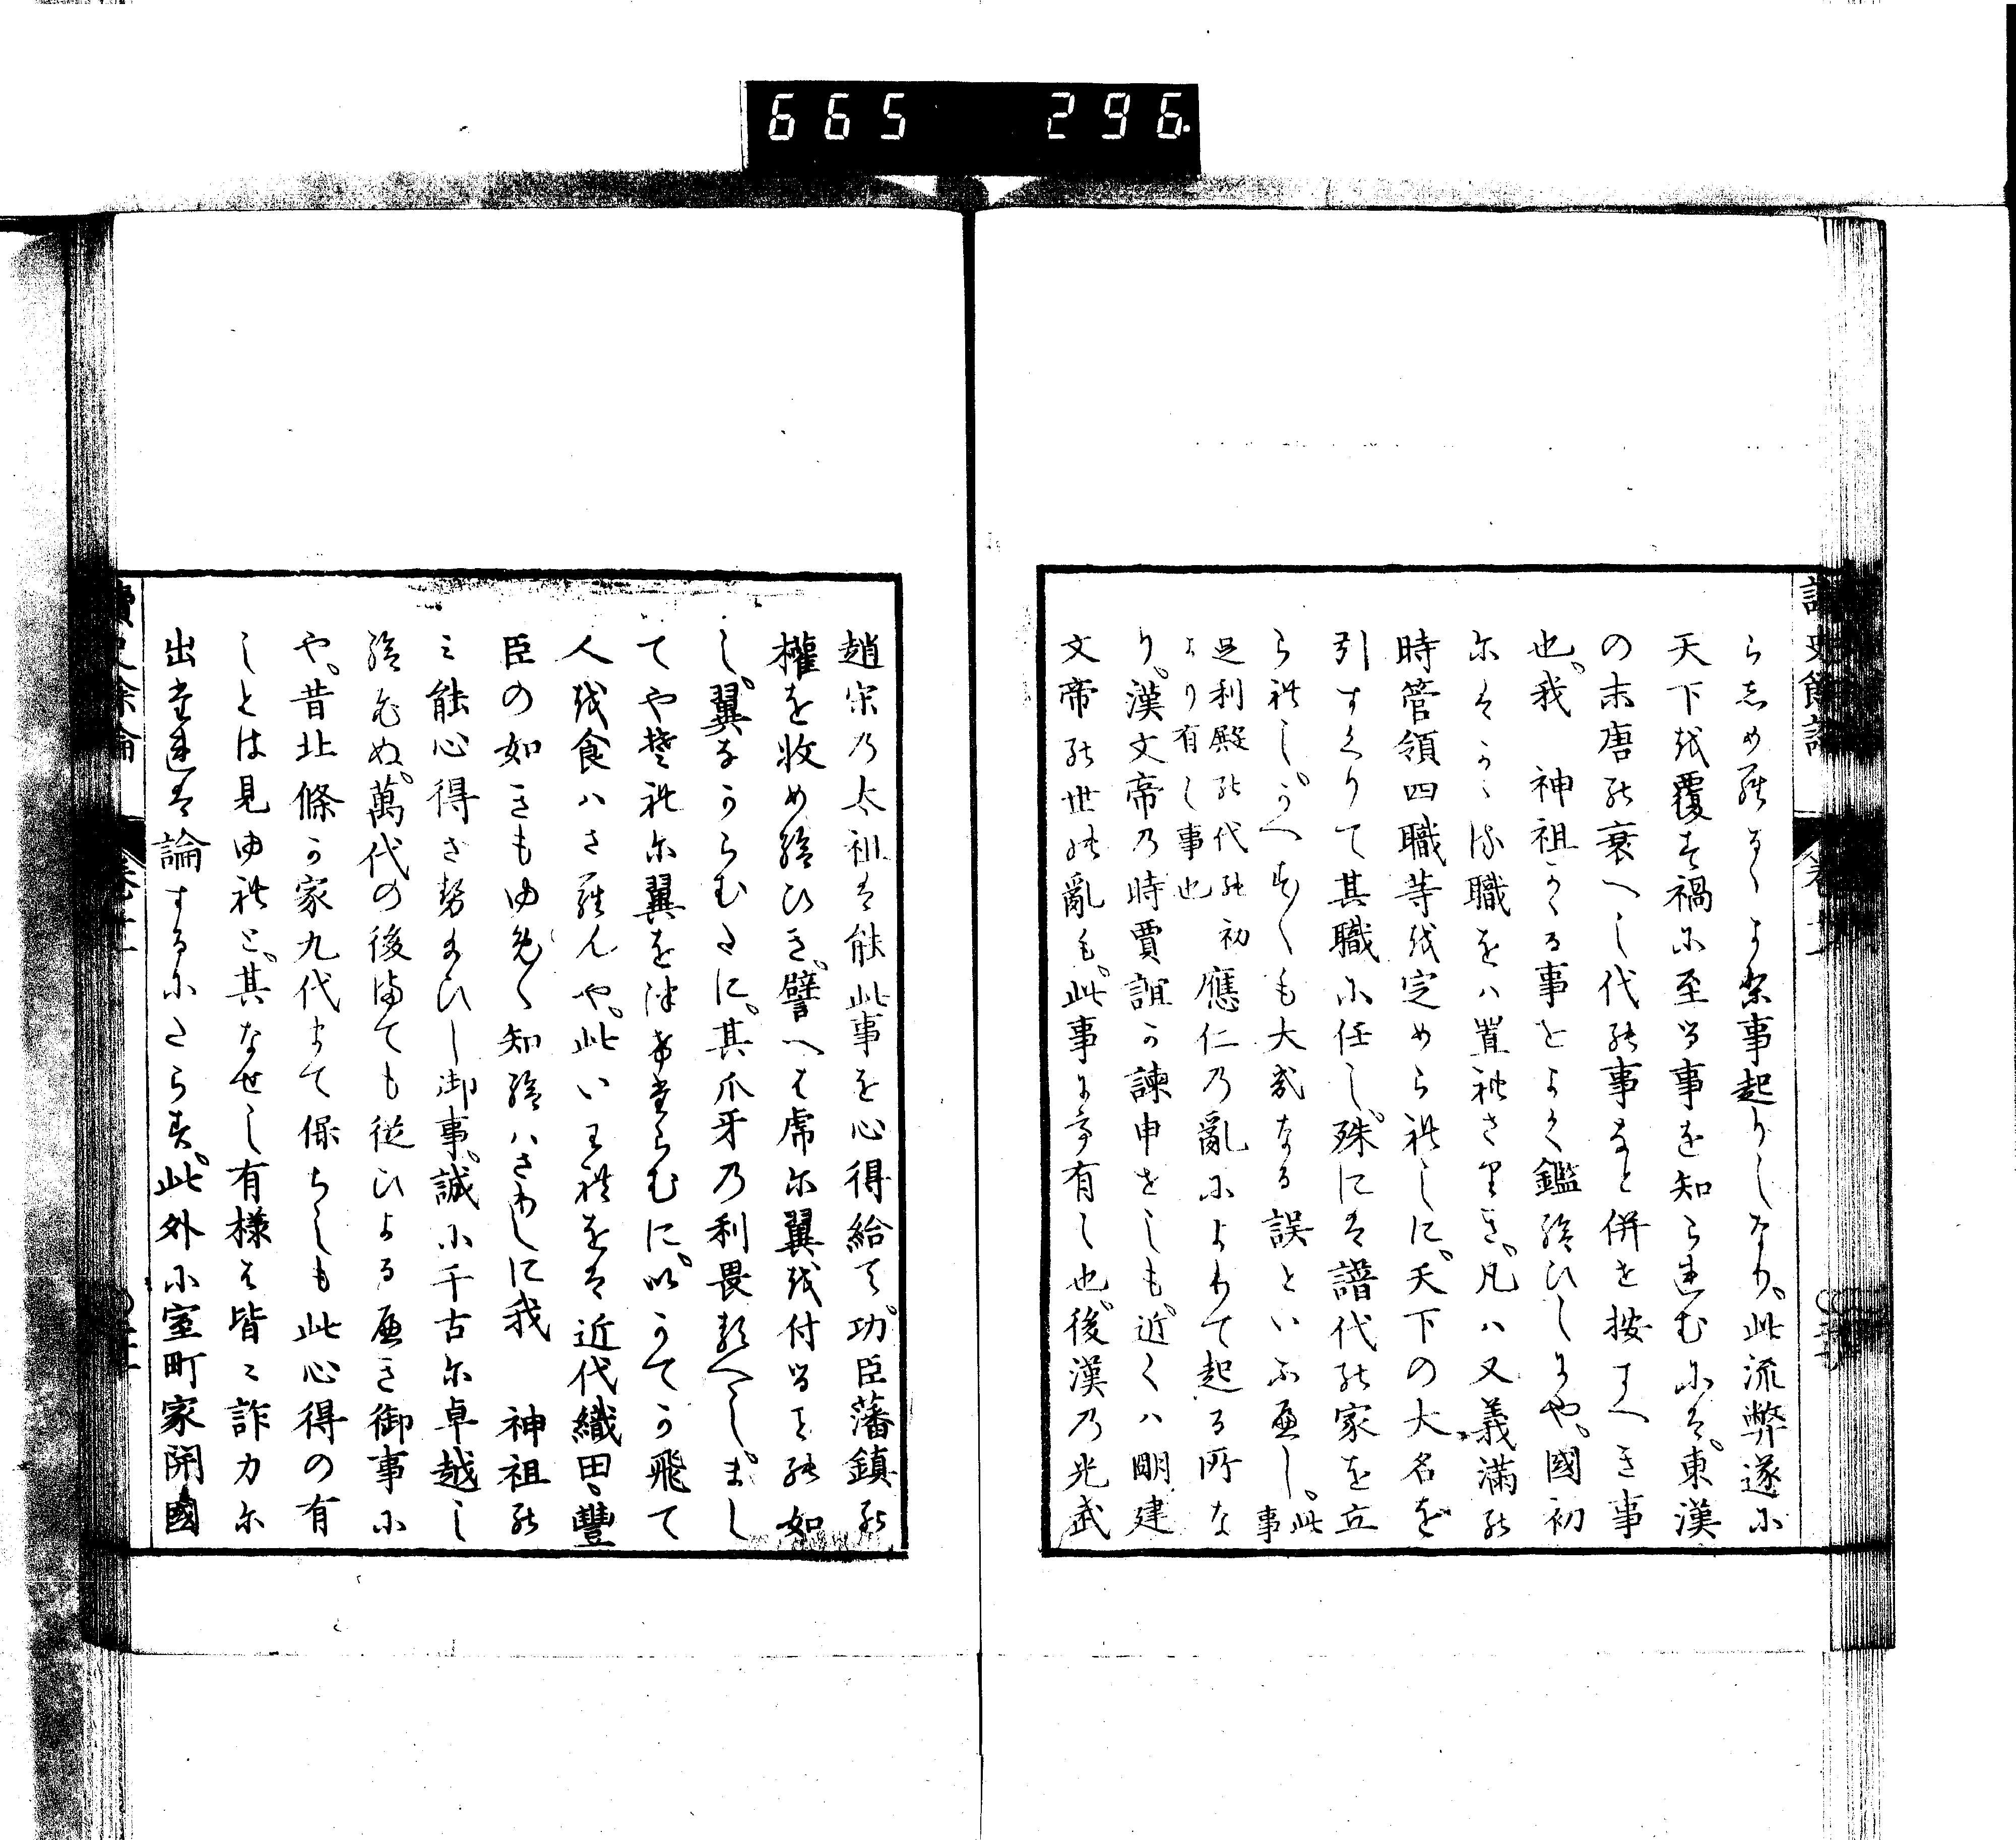 665 296
らしめ難くよ累事起りしなり。此流弊遂に
天下を覆す禍に至る事を知られむには。東漢
の末唐の衰へし代の事なと併せ按すへき事
也。我 神祖かゝる事をよく鑑給ひしにや。國初
にはかゝる職をハ置れさりき。凡ハ又義滿の
時管領四職等を定められしに。天下の大名を
引すくりて其職に任し。殊には譜代の家を立
られし。かへす〳〵も大きなる誤といふへし。此事
足利殿の代の初より有し事也 應仁の亂によりて起る所な
り。漢文帝の時賈誼か諫申せしも。近くハ明建
文帝の世の亂も。此事にこそ有し也。後漢の光武
趙宋の太祖は能此事を心得給て。功臣藩鎮の
權を收め給ひき。譬へは虎に翼を付るもの如
し。翼なからむたに。其爪牙の利畏るへし。まし
てやそれに翼を添たらむに。以かてか飛て
人を食ハさらんや。此いましめをは近代織田豐
臣の如きもゆめ〳〵知給ハさりしに我 神祖の
ミ能心得させ給ひし御事。誠に千古に卓越し
給ぬ。萬代の後までも從ひよるへき御事に
や。昔北條か家九代まて保ちしも此心得の有
しとは見ゆれと。其なせし有様は皆々詐力に
出たれは論するにたらす。此外に室町家開國